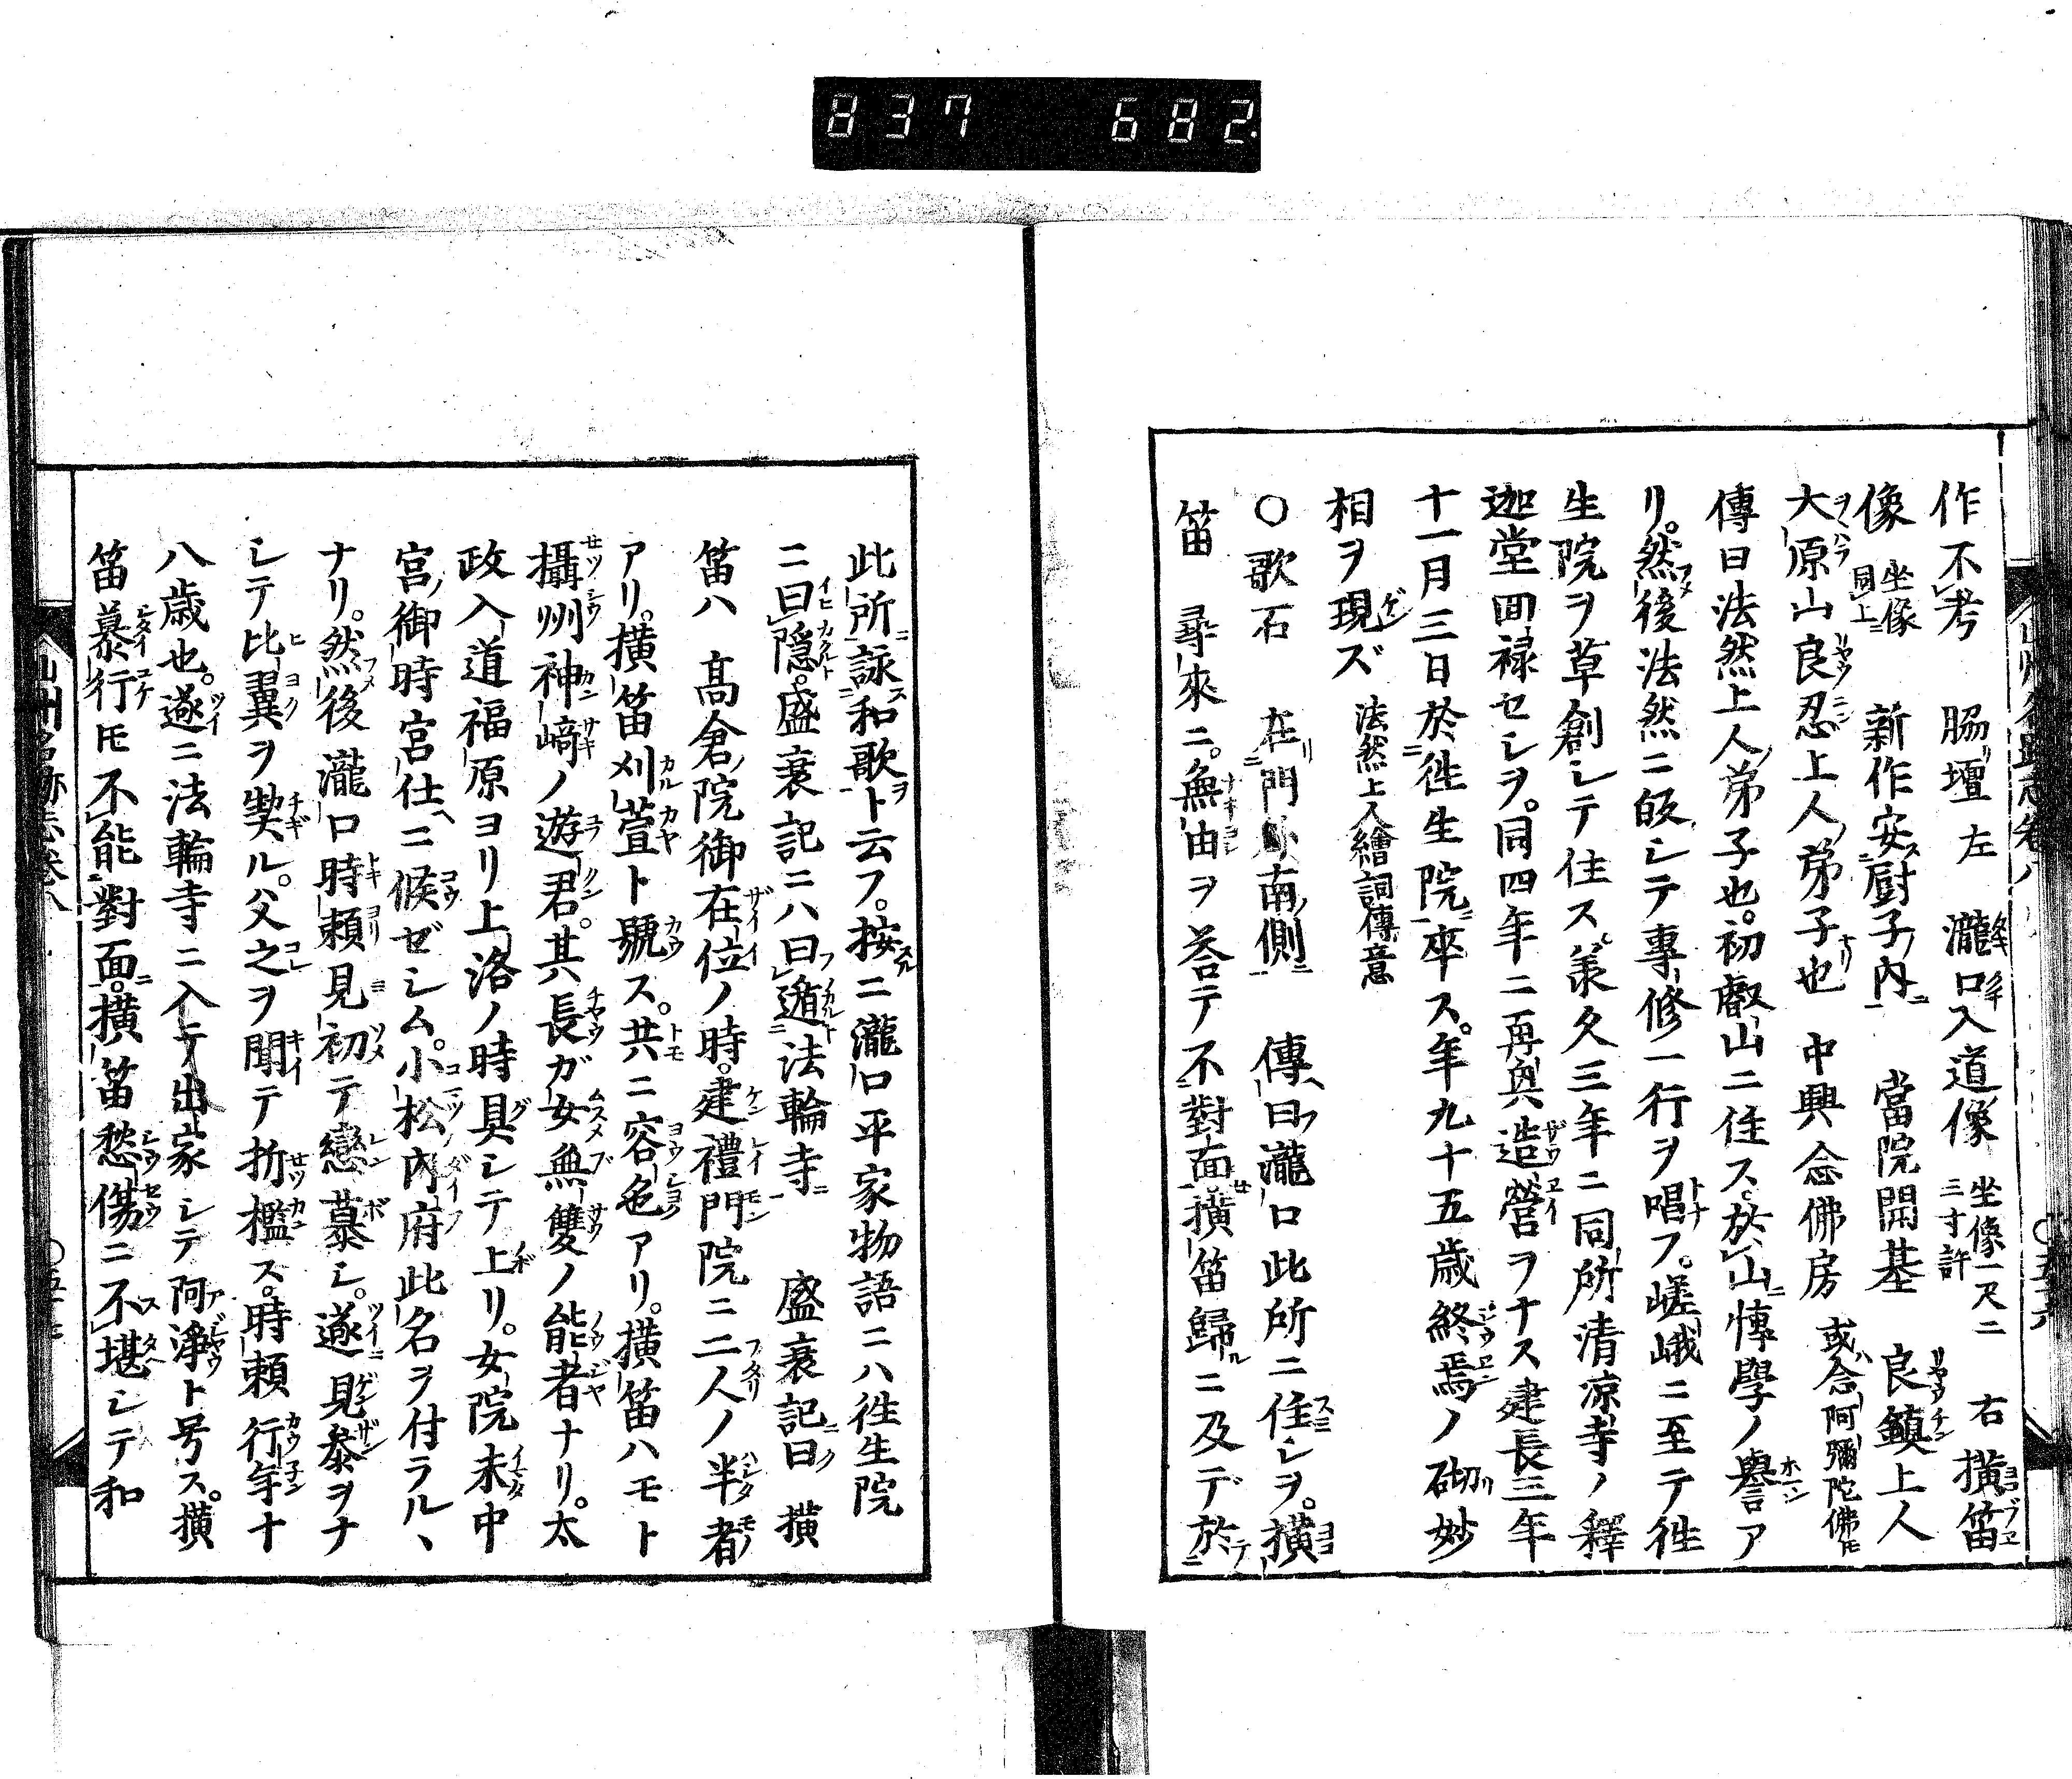 837 682
作不考 脇壇左 瀧口入道像 坐像一尺二三寸許 右 横笛
像 坐像同上 新作安厨子内 當院開基 良鎮上人
大原山良忍上人弟子也 中興念佛房 或念阿彌陀佛ﾄﾓ
傳曰法然上人弟子也。初叡山ニ住ス。於山慱學ノ譽ア
リ。然後法然ニ皈シテ專修一行ヲ唱フ。嵯峨ニ至テ徃
生院ヲ草創シテ住ス。羕久三年ニ同所清凉寺ノ釋
迦堂囬禄セシヲ。同四年ニ再興造營ヲナス建長三年
十一月三日於徃生院卒ス。年九十五歳終焉ノ砌妙
相ヲ現ズ 法然上人繪詞傳意
○歌石 在門外南側 傳曰瀧口此所ニ住シヲ。横
笛 尋來ニ。無由ヲ荅テ不對面。横笛歸ニ及デ於
此所詠和歌ト云フ。按ニ瀧口平家物語ニハ徃生院
ニ曰隠。盛衰記ニハ曰遁法輪寺 盛衰記曰 横
笛ハ 髙倉院御在位ノ時。建禮門院ニ二人ノ半者
アリ。横笛刈萱ト號ス。共ニ容色アリ。横笛ハモト
攝州神﨑ノ遊君。其長ガ女無雙ノ能者ナリ。太
政入道福原ヨリ上洛ノ時具シテ上リ。女院未中
宮御時宮仕ニ候ゼシム。小松内府此名ヲ付ラル、
ナリ。然後瀧口時頼見初テ戀慕シ。遂見參ヲナ
シテ比翼ヲ契ル。父之ヲ聞テ折檻ス。時頼行年十
八歳也。遂ニ法輪寺ニ入テ出家シテ阿浄ト号ス。横
笛慕行ﾄﾓ不能對面。横笛愁傷ニ不堪シテ和